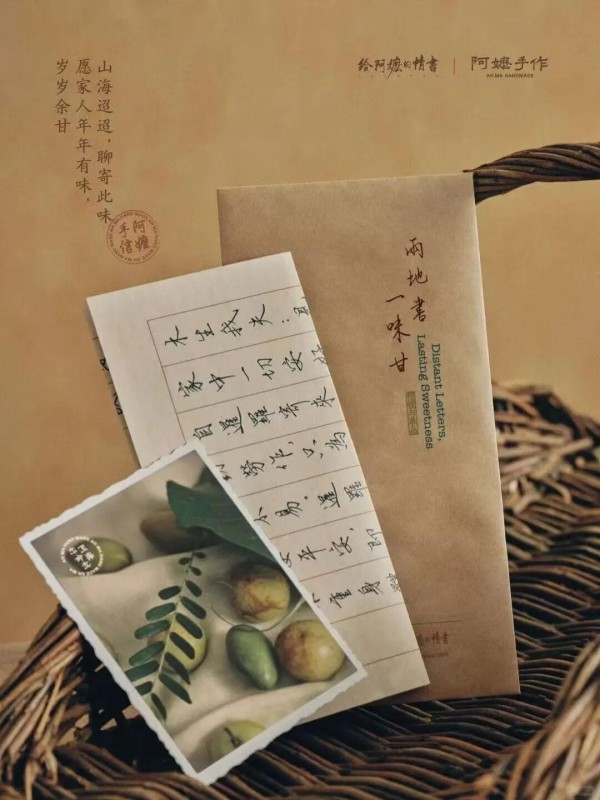 山海迢迢，聊寄此味
愿家人年年有味，
岁岁余甘
阿嬷
手信
给阿嬷的情书
阿嬷手作
AH MA HANDMADE
兩地書
一味甘
Distant Letters,
Lasting Sweetness
木生我夫：
家中一切安好
自暹羅寄來
勞作，只為
不易。暹羅
平安，即
重身
情書